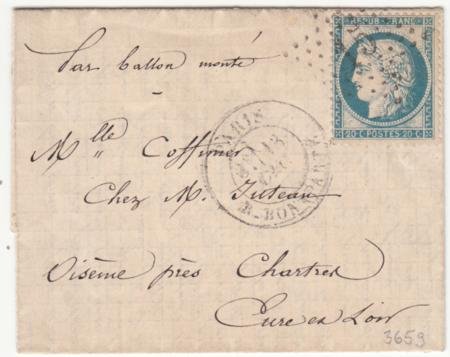 REPUB. FRANC.
Par ballon monté
20 C. POSTES 20 C.
PARIS
Mlle Coffinier
Chez M. Juteau
R. BONAPARTE
Oisème près Chartres
Eure et Loir
3659